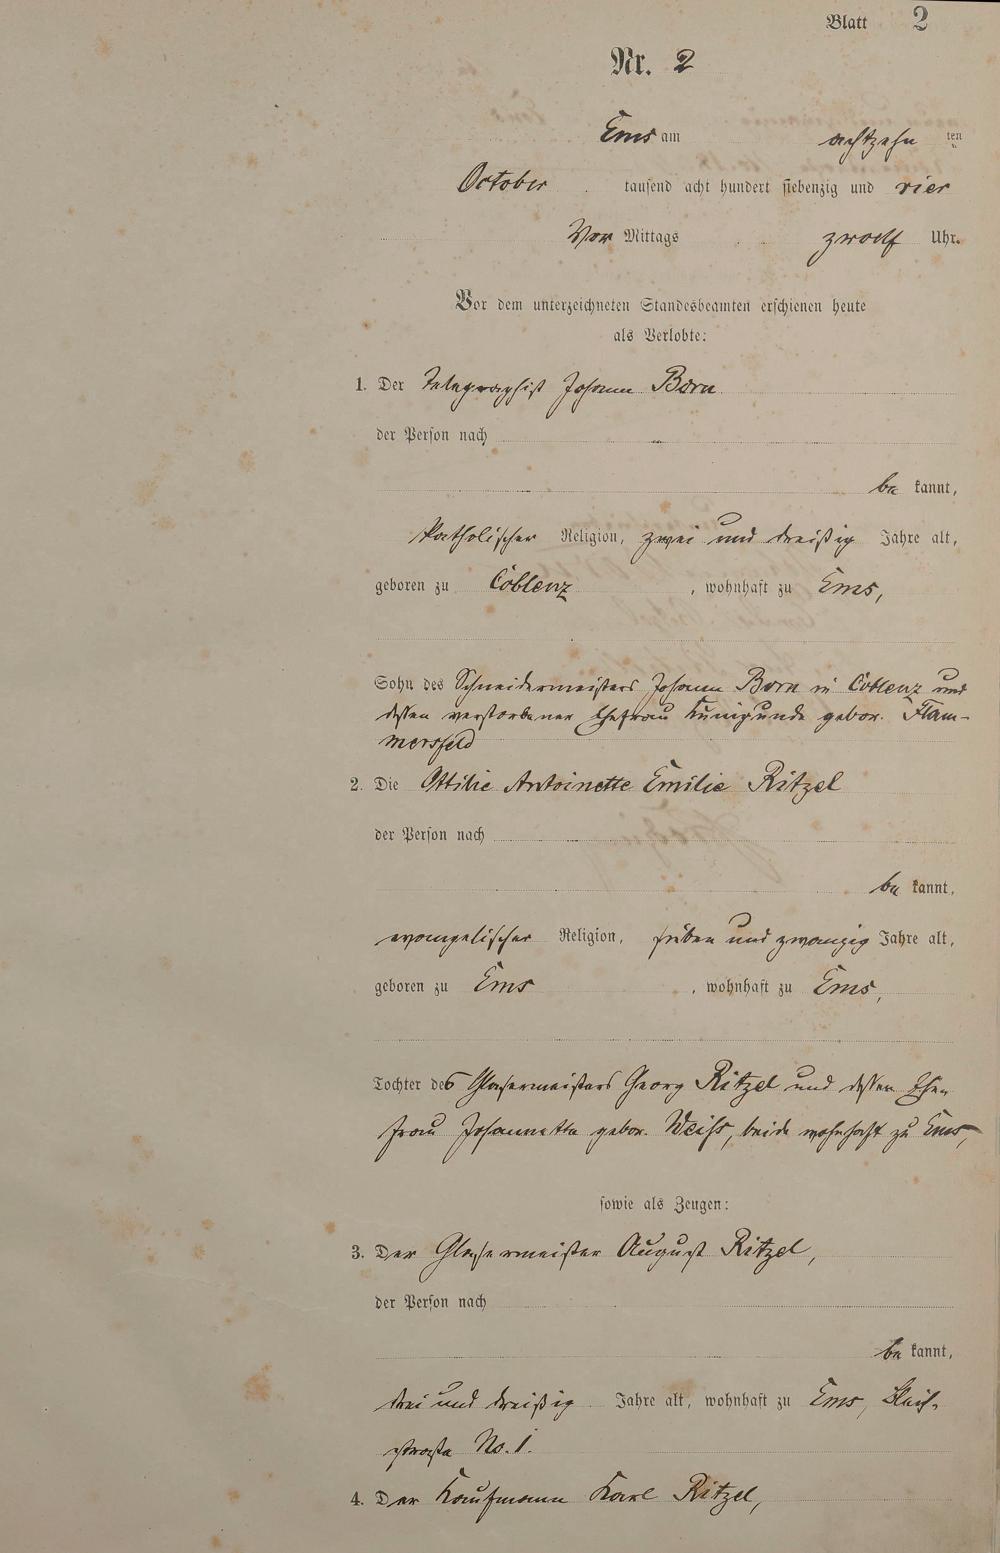 Blatt 2
Nr. 2
Ems am achtzehn ten
October tausend acht hundert siebenzig und vier
Vor Mittags zwoelf Uhr.
Vor dem unterzeichneten Standesbeamten erschienen heute
als Verlobte:
1. Der Telegraphist Johann Born
der Person nach
be kannt,
katholischer Religion, zwei und dreißig Jahre alt,
geboren zu Coblenz, wohnhaft zu Ems,
Sohn des Schneidermeisters Johann Born in Coblenz und
dessen verstorbener Ehefrau Kunigunde gebor. Flam-
mersfeld
2. Die Ottilie Antoinette Emilie Ritzel
der Person nach
be kannt,
evangelischer Religion, sieben und zwanzig Jahre alt,
geboren zu Ems, wohnhaft zu Ems,
Tochter des Glasermeisters Georg Ritzel und dessen Ehe-
frau Johannette gebor. Weiß, beide wohnhaft zu Ems,
sowie als Zeugen:
3. Der Glasermeister August Ritzel,
der Person nach
be kannt,
drei und dreißig Jahre alt, wohnhaft zu Ems, Bleich-
straße No. 1.
4. Der Kaufmann Karl Ritzel,